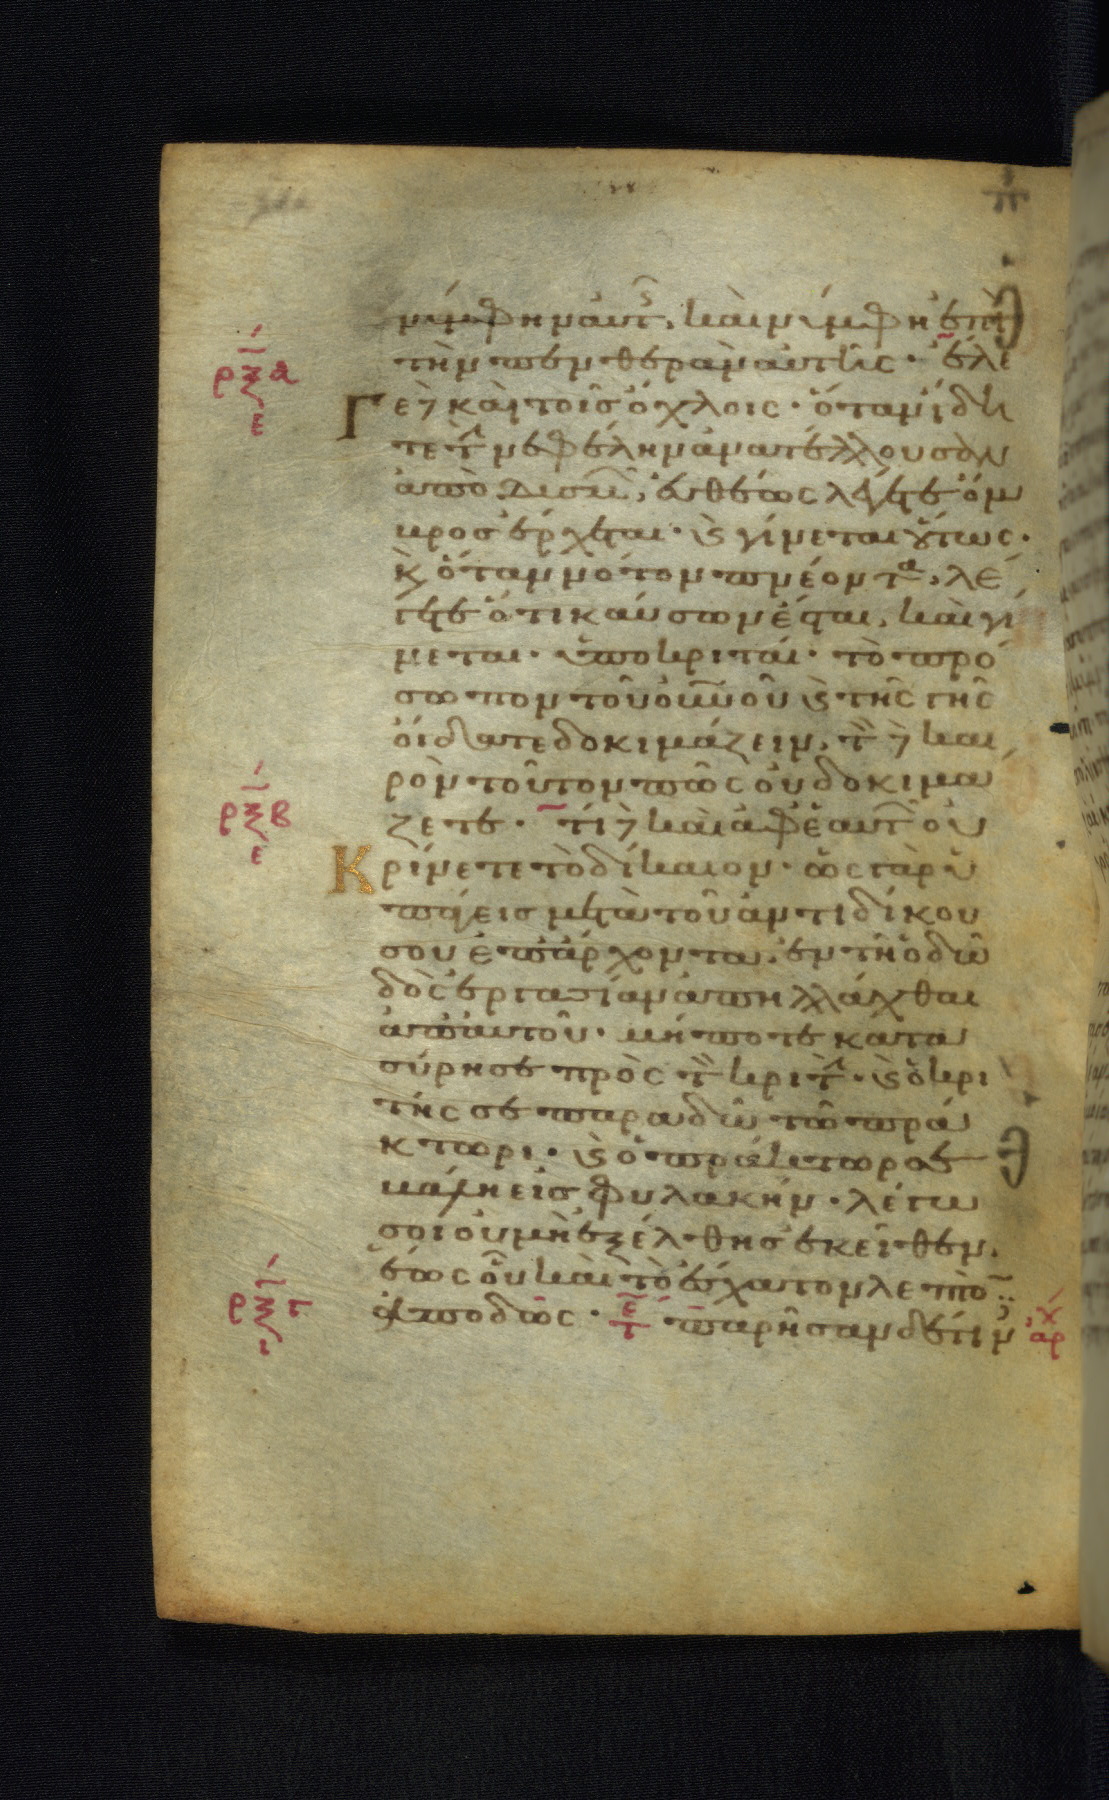 νύμφην αὐτῆς, καὶ νύμφη ἐπὶ
τὴν πενθερὰν αὐτῆς· ἔλε
γε δὲ καὶ τοῖς ὄχλοις· ὅταν ἴδη
τε τὴν νεφέλην ἀνατέλλουσαν
ἀπὸ δυσμῶν, εὐθέως λέγετε ὄμ
βρος ἔρχεται· καὶ γίνεται οὕτως·
καὶ ὅταν νότον πνέοντα, λέ
γετε ὅτι καύσων ἔσται, καὶ γί
νεται· ὑποκριταί· τὸ πρό
σωπον τοῦ οὐνοῦ καὶ τῆς γῆς
οἴδατε δοκιμάζειν, τὸν δὲ και
ρὸν τοῦτον πῶς οὐ δοκιμά
ζετε· τί δὲ καὶ ἀφ' ἑαυτῶν οὐ
κρίνετε τὸ δίκαιον· ὡς γὰρ ὑ
πάγεις μετὰ τοῦ ἀντιδίκου
σου ἐπ' ἄρχοντα, ἐν τῇ ὁδῶ
δὸς ἐργασίαν ἀπηλλάχθαι
ἀπ' αὐτοῦ· μήποτε κατα
σύρη σε πρὸς τὸν κριτήν· καὶ ὁ κρι
τής σε παραδῶ τῶ πρά
κτωρι· καὶ ὁ πράκτωρ σε
βάλη εἰς φυλακήν· λέγω
σοι οὐ μὴ ἐξέλθης ἐκεῖθεν,
ἕως οὗ καὶ τὸ ἔσχατον λεπτὸν
ἀποδῶς· παρῆσαν δέ τιν
ρξα
ε
ρξβ
ε
ρξγ
ι
αρχ